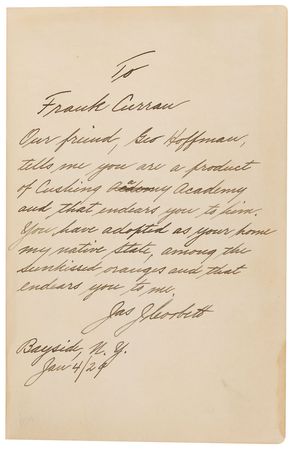 To
Frank Curran
Our friend, Geo Hoffman,
tells me you are a product
of Cushing Academy
and that endears you to him.
You, have adopted as your home
my native State, among the
sunkissed oranges and that
endears you to me.
Jas J Corbett
Bayside, N.Y.
Jan 4/29